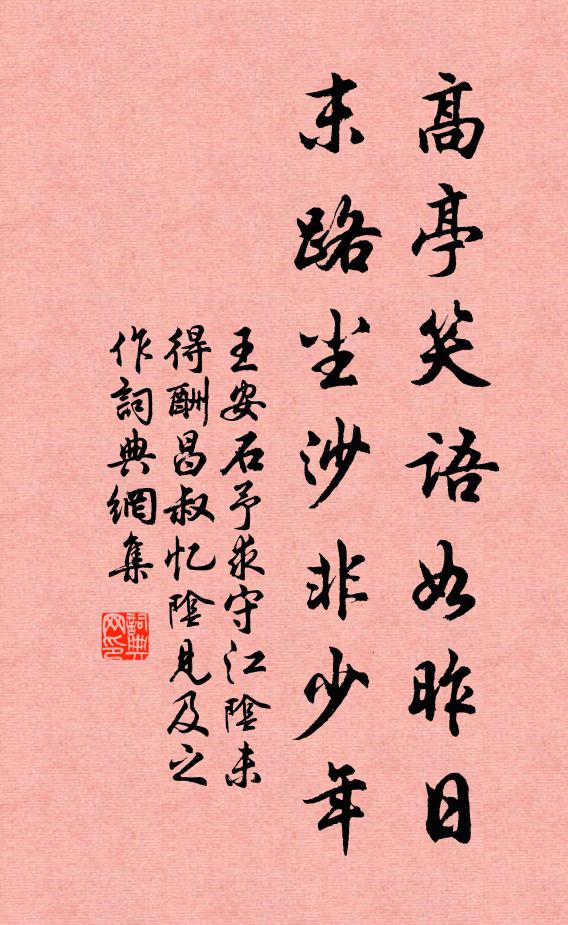 高亭笑語如昨日
末路尘沙非少年
王安石予求守江陰未
得酬昌叔忆陰見及之
作詞典網集
詞典
网印